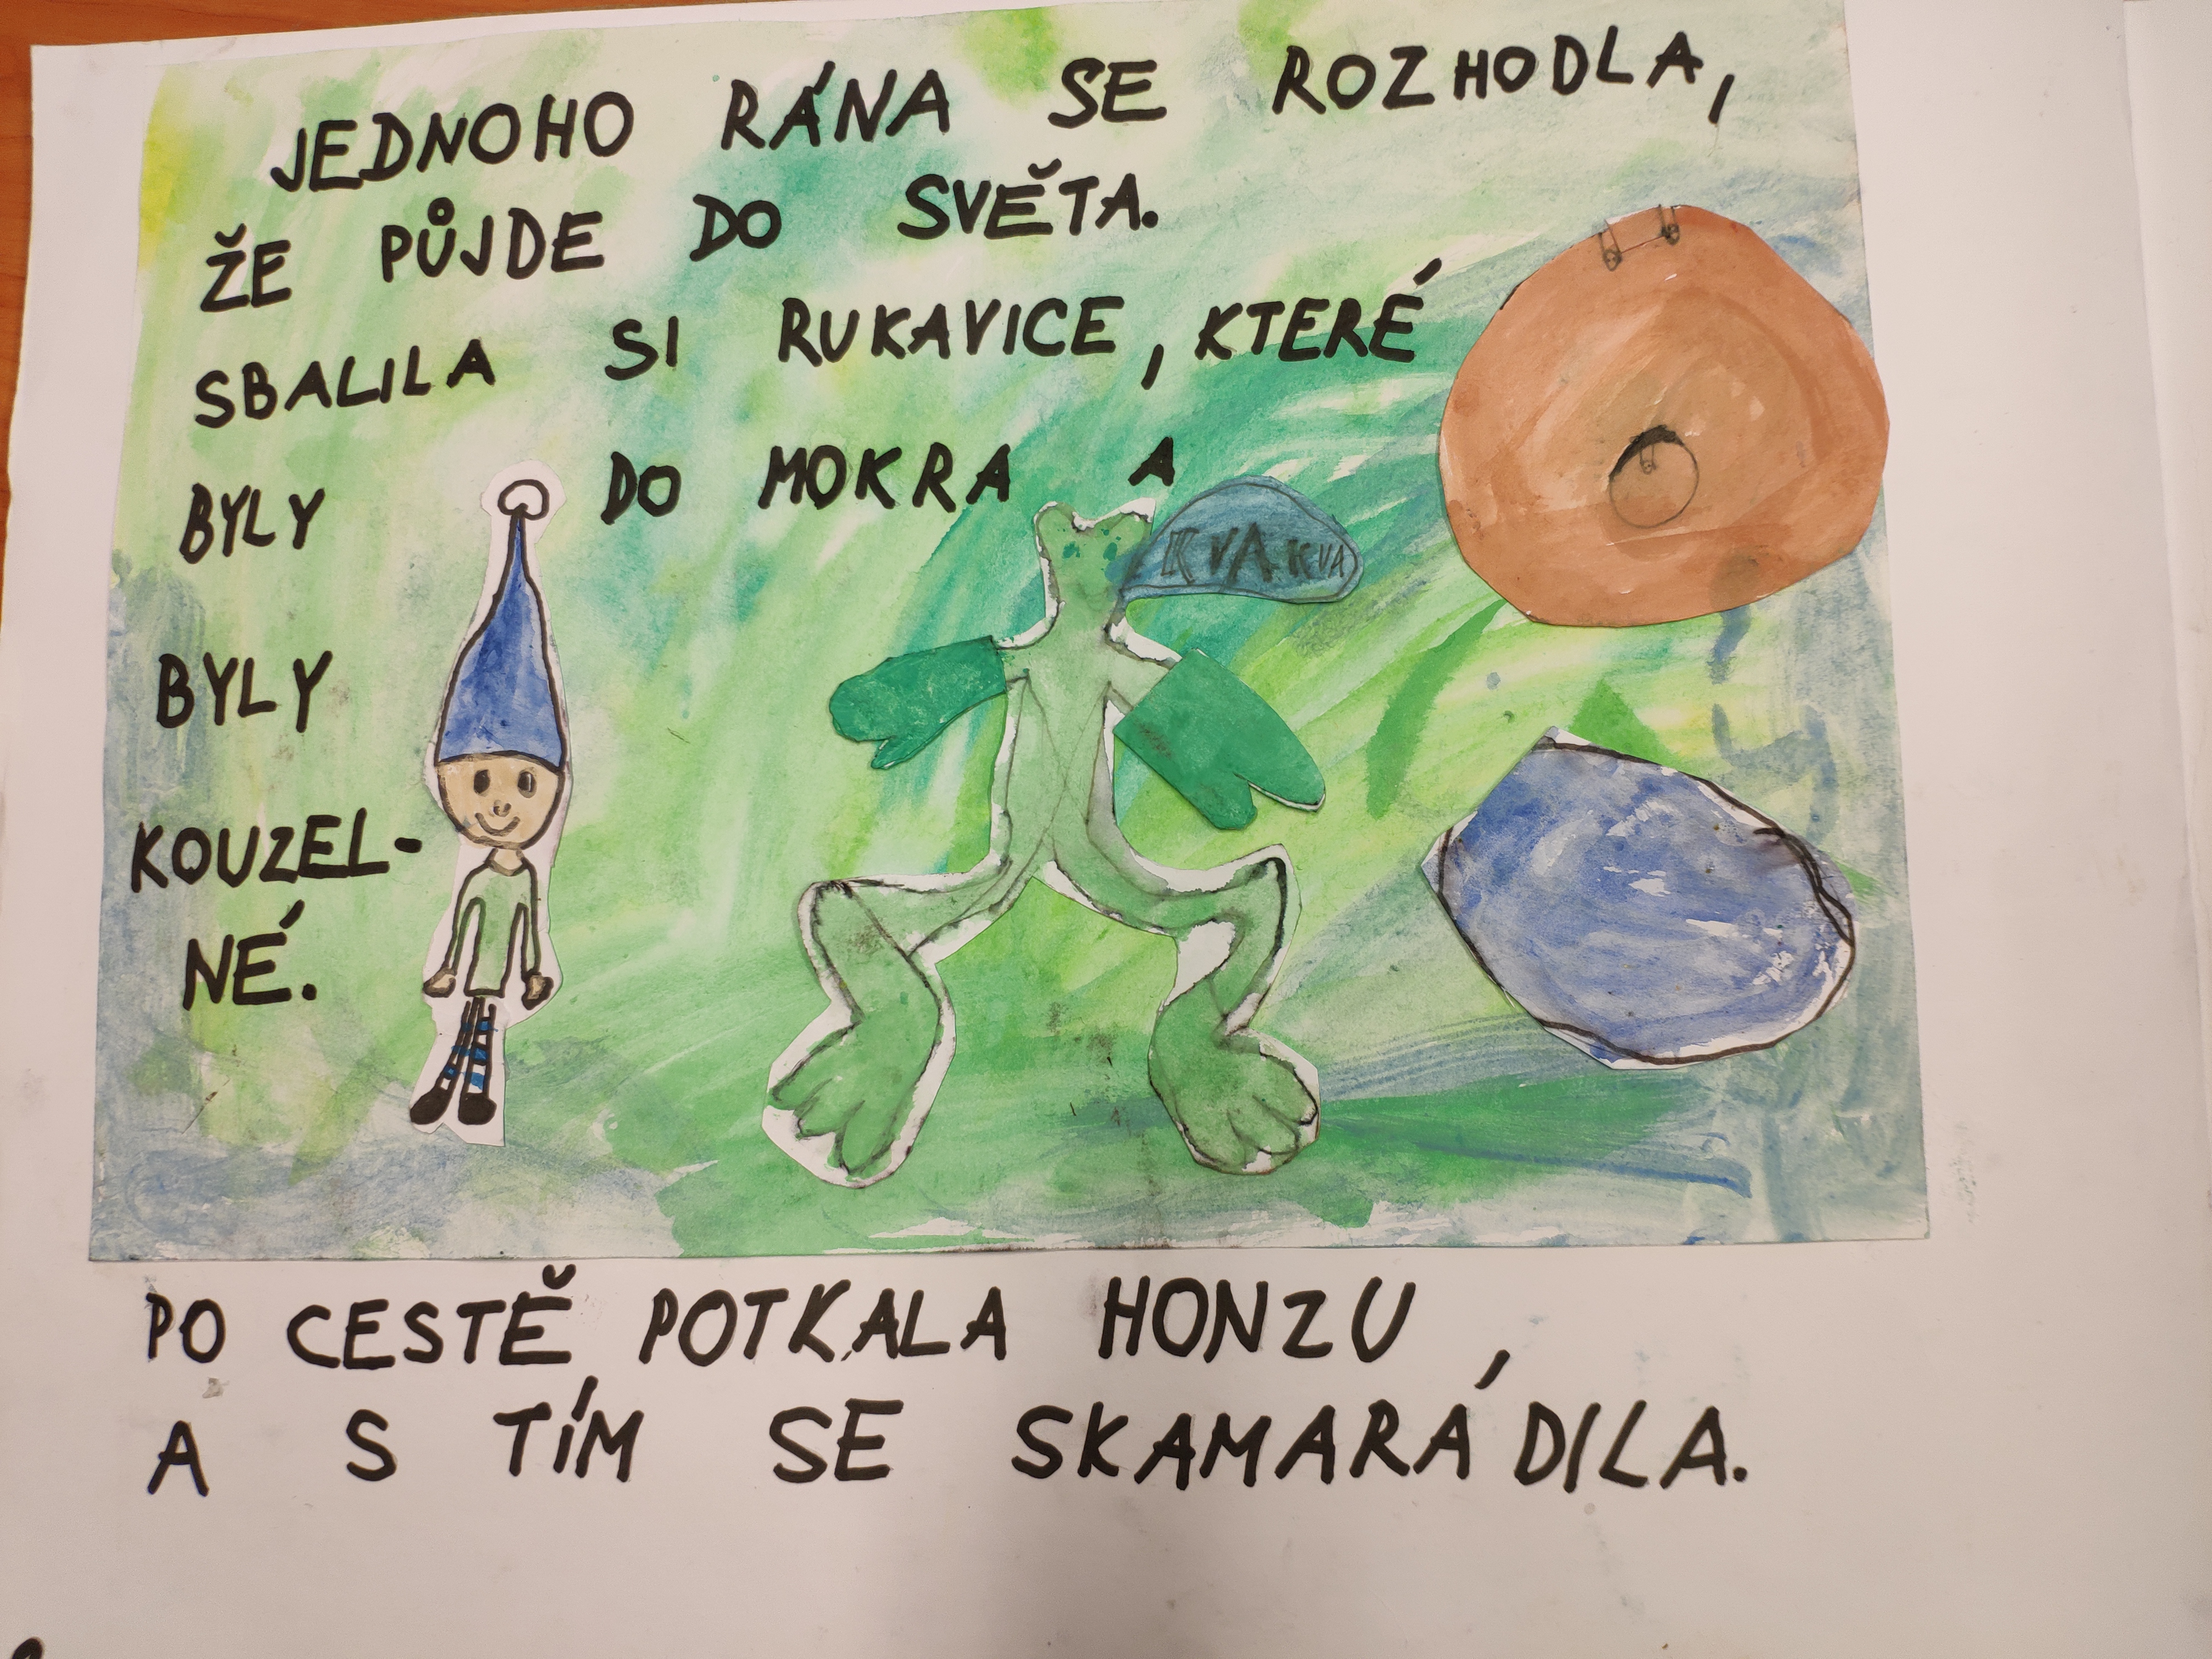 JEDNOHO RÁNA SE ROZHODLA,
ŽE PŮJDE DO SVĚTA.
SBALILA SI RUKAVICE, KTERÉ
BYLY DO MOKRA A
KVA KVA
BYLY
KOUZEL-
NÉ.
PO CESTĚ POTKALA HONZU,
A S TÍM SE SKAMARÁDILA.